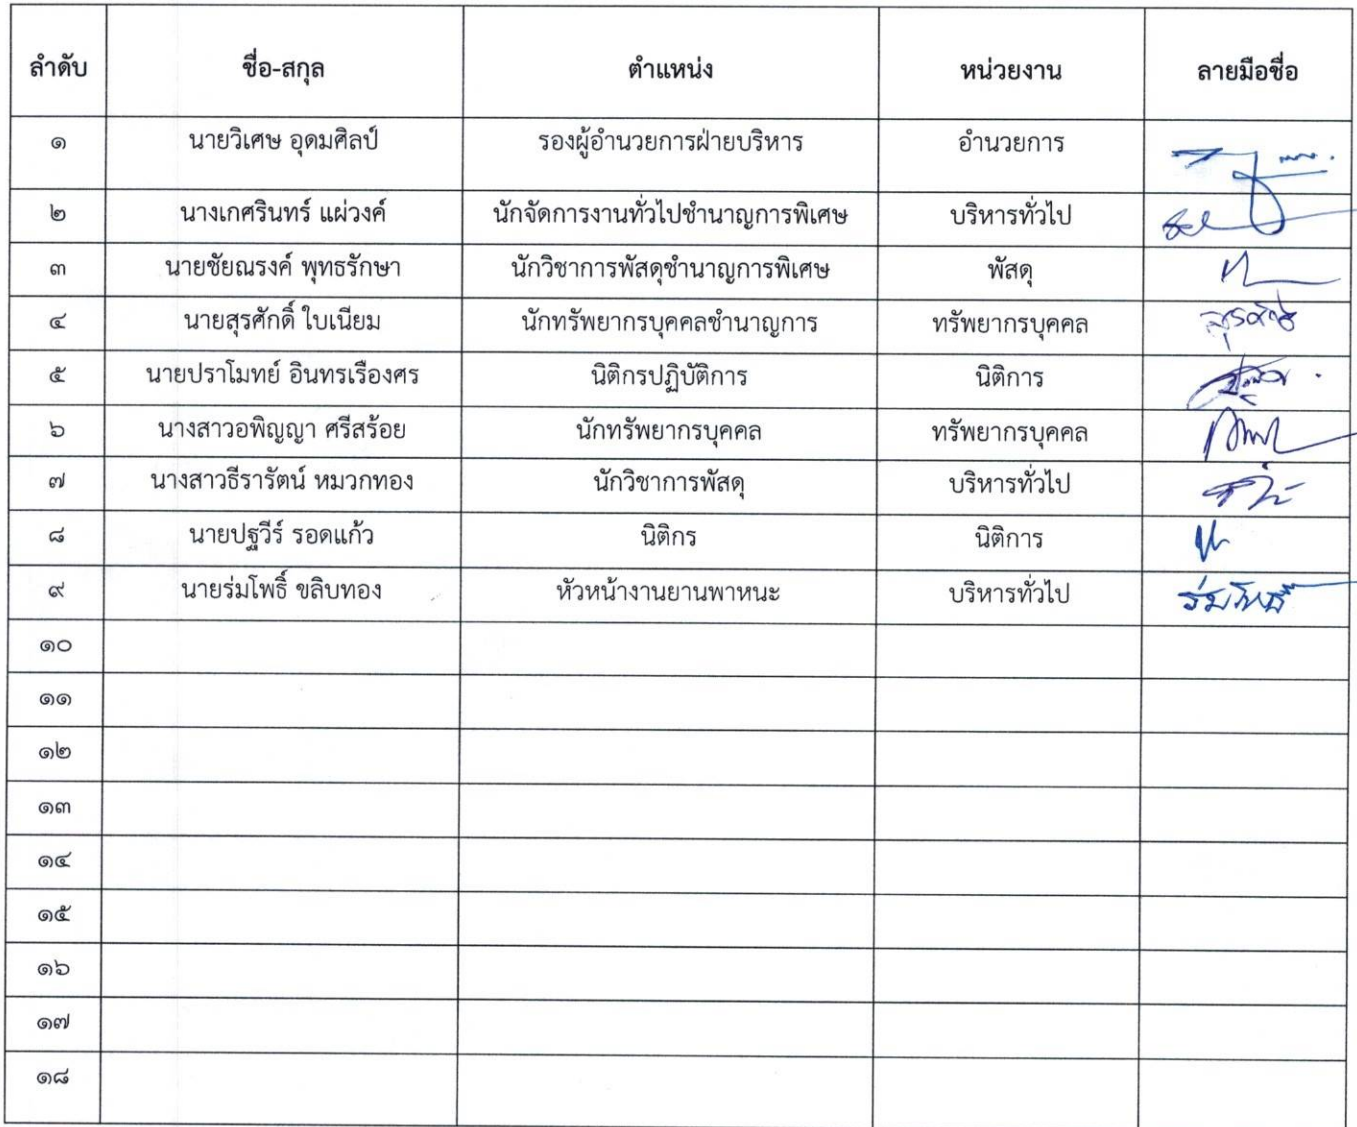 ลำดับ ชื่อ-สกุล ตำแหน่ง หน่วยงาน ลายมือชื่อ
๑ นายวิเศษ อุดมศิลป์ รองผู้อำนวยการฝ่ายบริหาร อำนวยการ
๒ นางเกศรินทร์ แผ่วงค์ นักจัดการงานทั่วไปชำนาญการพิเศษ บริหารทั่วไป
๓ นายชัยณรงค์ พุทธรักษา นักวิชาการพัสดุชำนาญการพิเศษ พัสดุ
๔ นายสุรศักดิ์ ใบเนียม นักทรัพยากรบุคคลชำนาญการ ทรัพยากรบุคคล สุรศักดิ์
๕ นายปราโมทย์ อินทรเรืองศร นิติกรปฏิบัติการ นิติการ
๖ นางสาวอพิญญา ศรีสร้อย นักทรัพยากรบุคคล ทรัพยากรบุคคล
๗ นางสาวธีรารัตน์ หมวกทอง นักวิชาการพัสดุ บริหารทั่วไป
๘ นายปฐวีร์ รอดแก้ว นิติกร นิติการ
๙ นายร่มโพธิ์ ขลิบทอง หัวหน้างานยานพาหนะ บริหารทั่วไป ร่มโพธิ์
๑๐
๑๑
๑๒
๑๓
๑๔
๑๕
๑๖
๑๗
๑๘